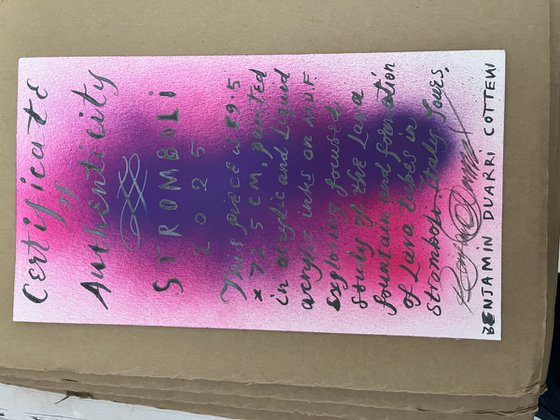 Certificate
of
Authenticity
STROMBOLI
2025
This piece is 89.5
x 72.5 CM, painted
in acrylic and liquid
acrylic inks on MDF
exploring focused
study of the Lava
fountain and formation
of Lava tubes in
Stromboli, Italy
BENJAMIN DUARRI COTTEW